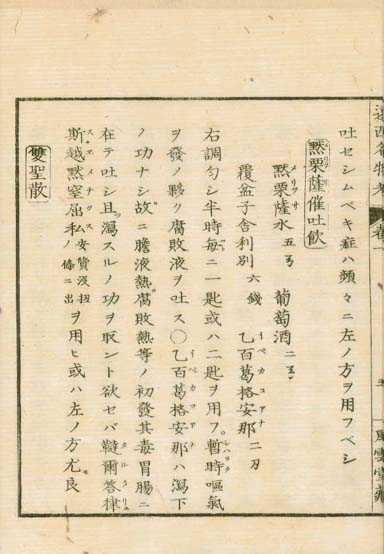 遠西名物考 卷一
吐セシムベキ症ハ頻々ニ左ノ方ヲ用フベシ
黙栗薩催吐飲
黙栗薩水 五ヲ 葡萄酒 二ヲ
覆盆子舎利別 六錢 乙百葛格安那 二刀
右調匀シ半時毎ニ一匙或ハ二匙ヲ用フ。暫時嘔氣
ヲ發ノ夥ク腐敗液ヲ吐ス○乙百葛格安那ハ瀉下
ノ功ナシ故ニ膽液熱腐敗熱等ノ初發其毒胃腸ニ
在テ吐シ且ツ瀉スルノ功ヲ取ント欲セバ韃爾答律
斯越黙窒屈私 安質没扭ノ條ニ出 ヲ用ヒ或ハ左ノ方尤良
雙聖散
五 風雲堂藏